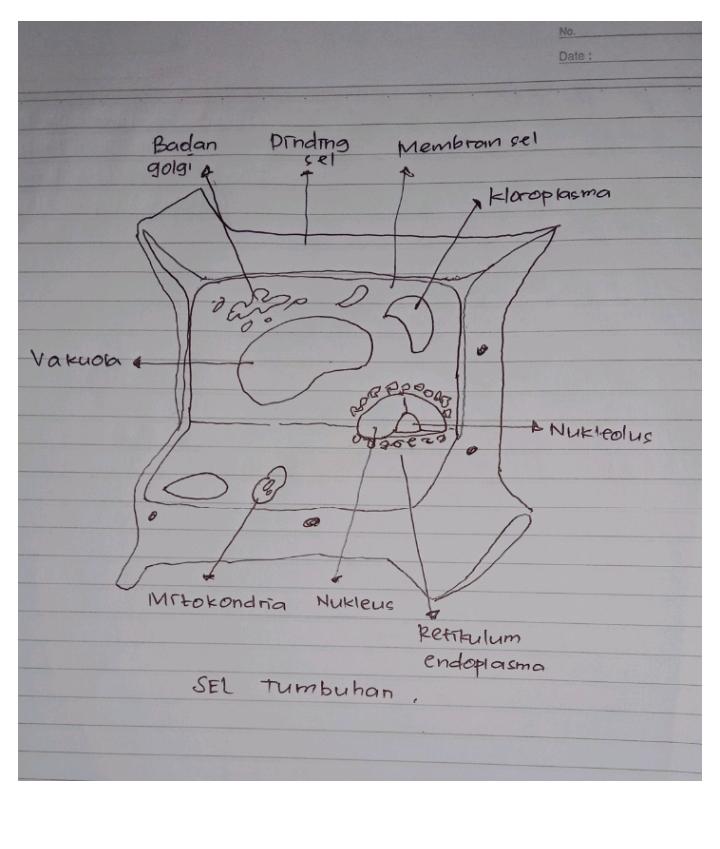 No.
Date :
Badan
golgi
Dinding
sel
Membran sel
kloroplasma
Vakuola
Nukleolus
Mitokondria
Nukleus
Retikulum
endoplasma
SEL Tumbuhan .